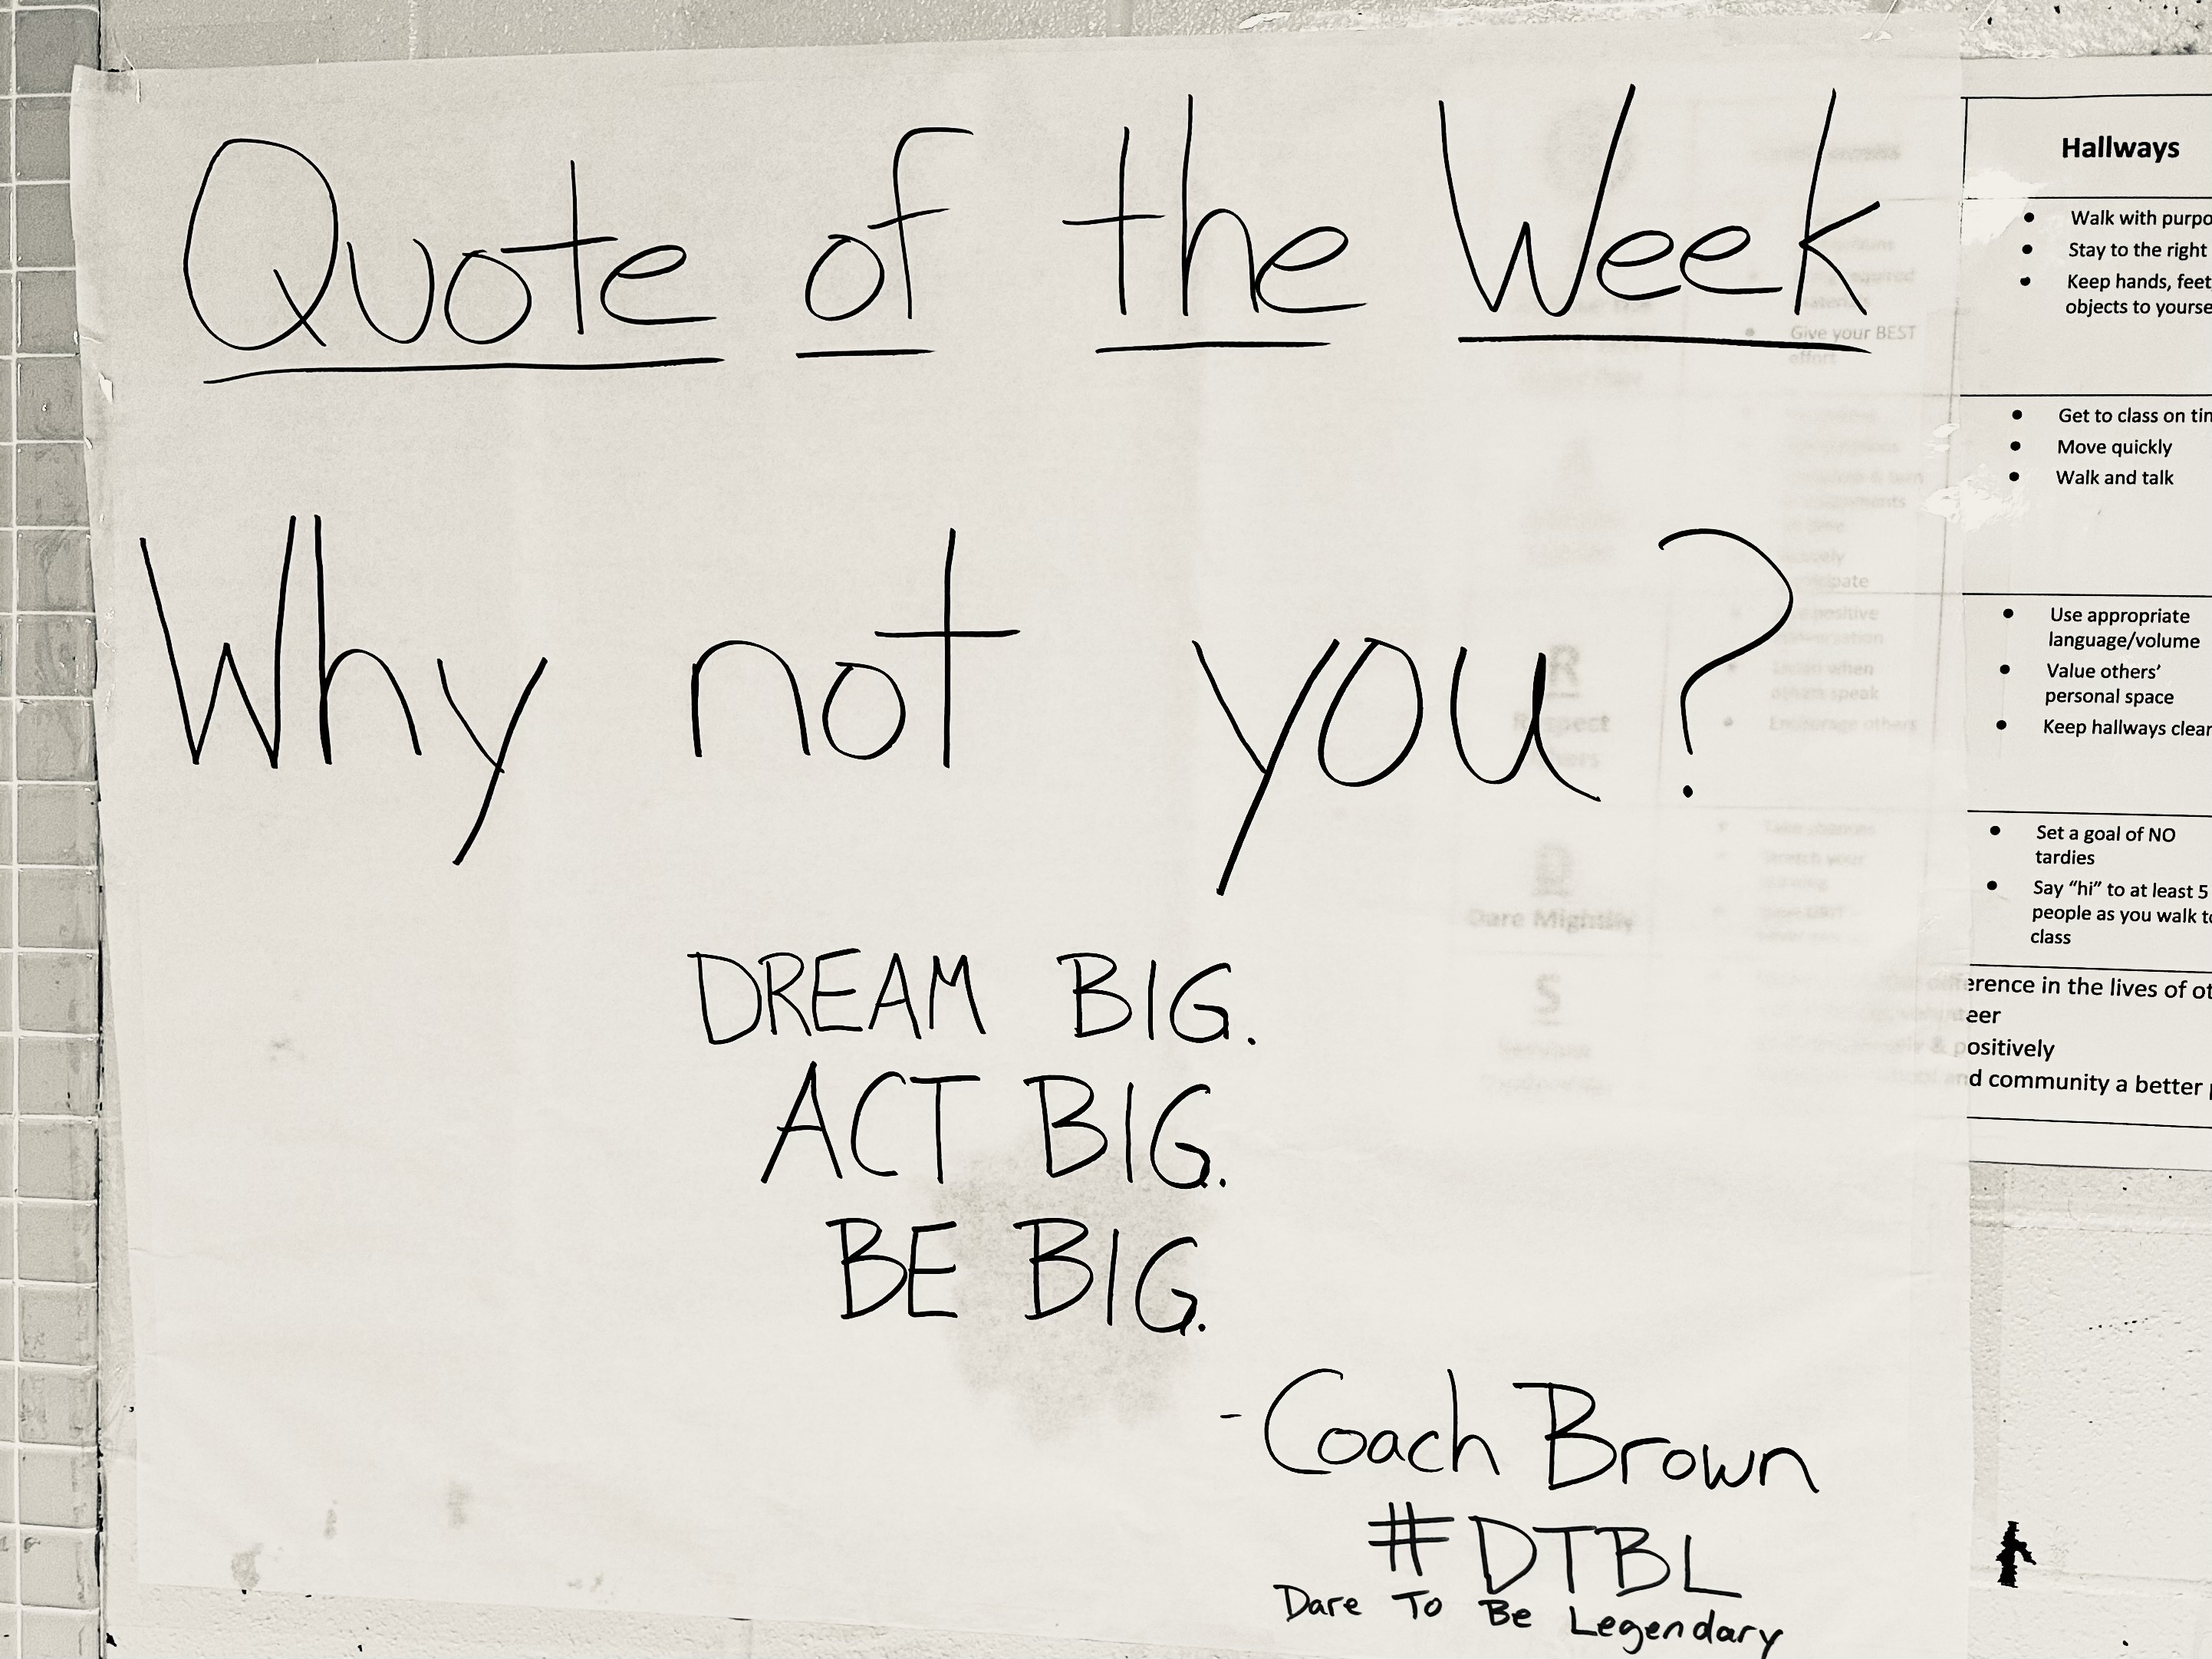 Quote of the Week
Why not you?
DREAM BIG.
ACT BIG.
BE BIG.
-Coach Brown
#DTBL
Dare To Be Legendary
Hallways
• Walk with
• Stay to the right
• Keep hands, feet
objects to
• Get to class on
• Move quickly
• Walk and talk
• Use appropriate
language/volume
• Value others'
personal space
• Keep hallways clear
• Set a goal of NO
tardies
• Say "hi" to at least 5
people as you walk
class
in the lives of
positively
community a better
• Give your BEST
effort
R
Respect
Dare Mightily
S